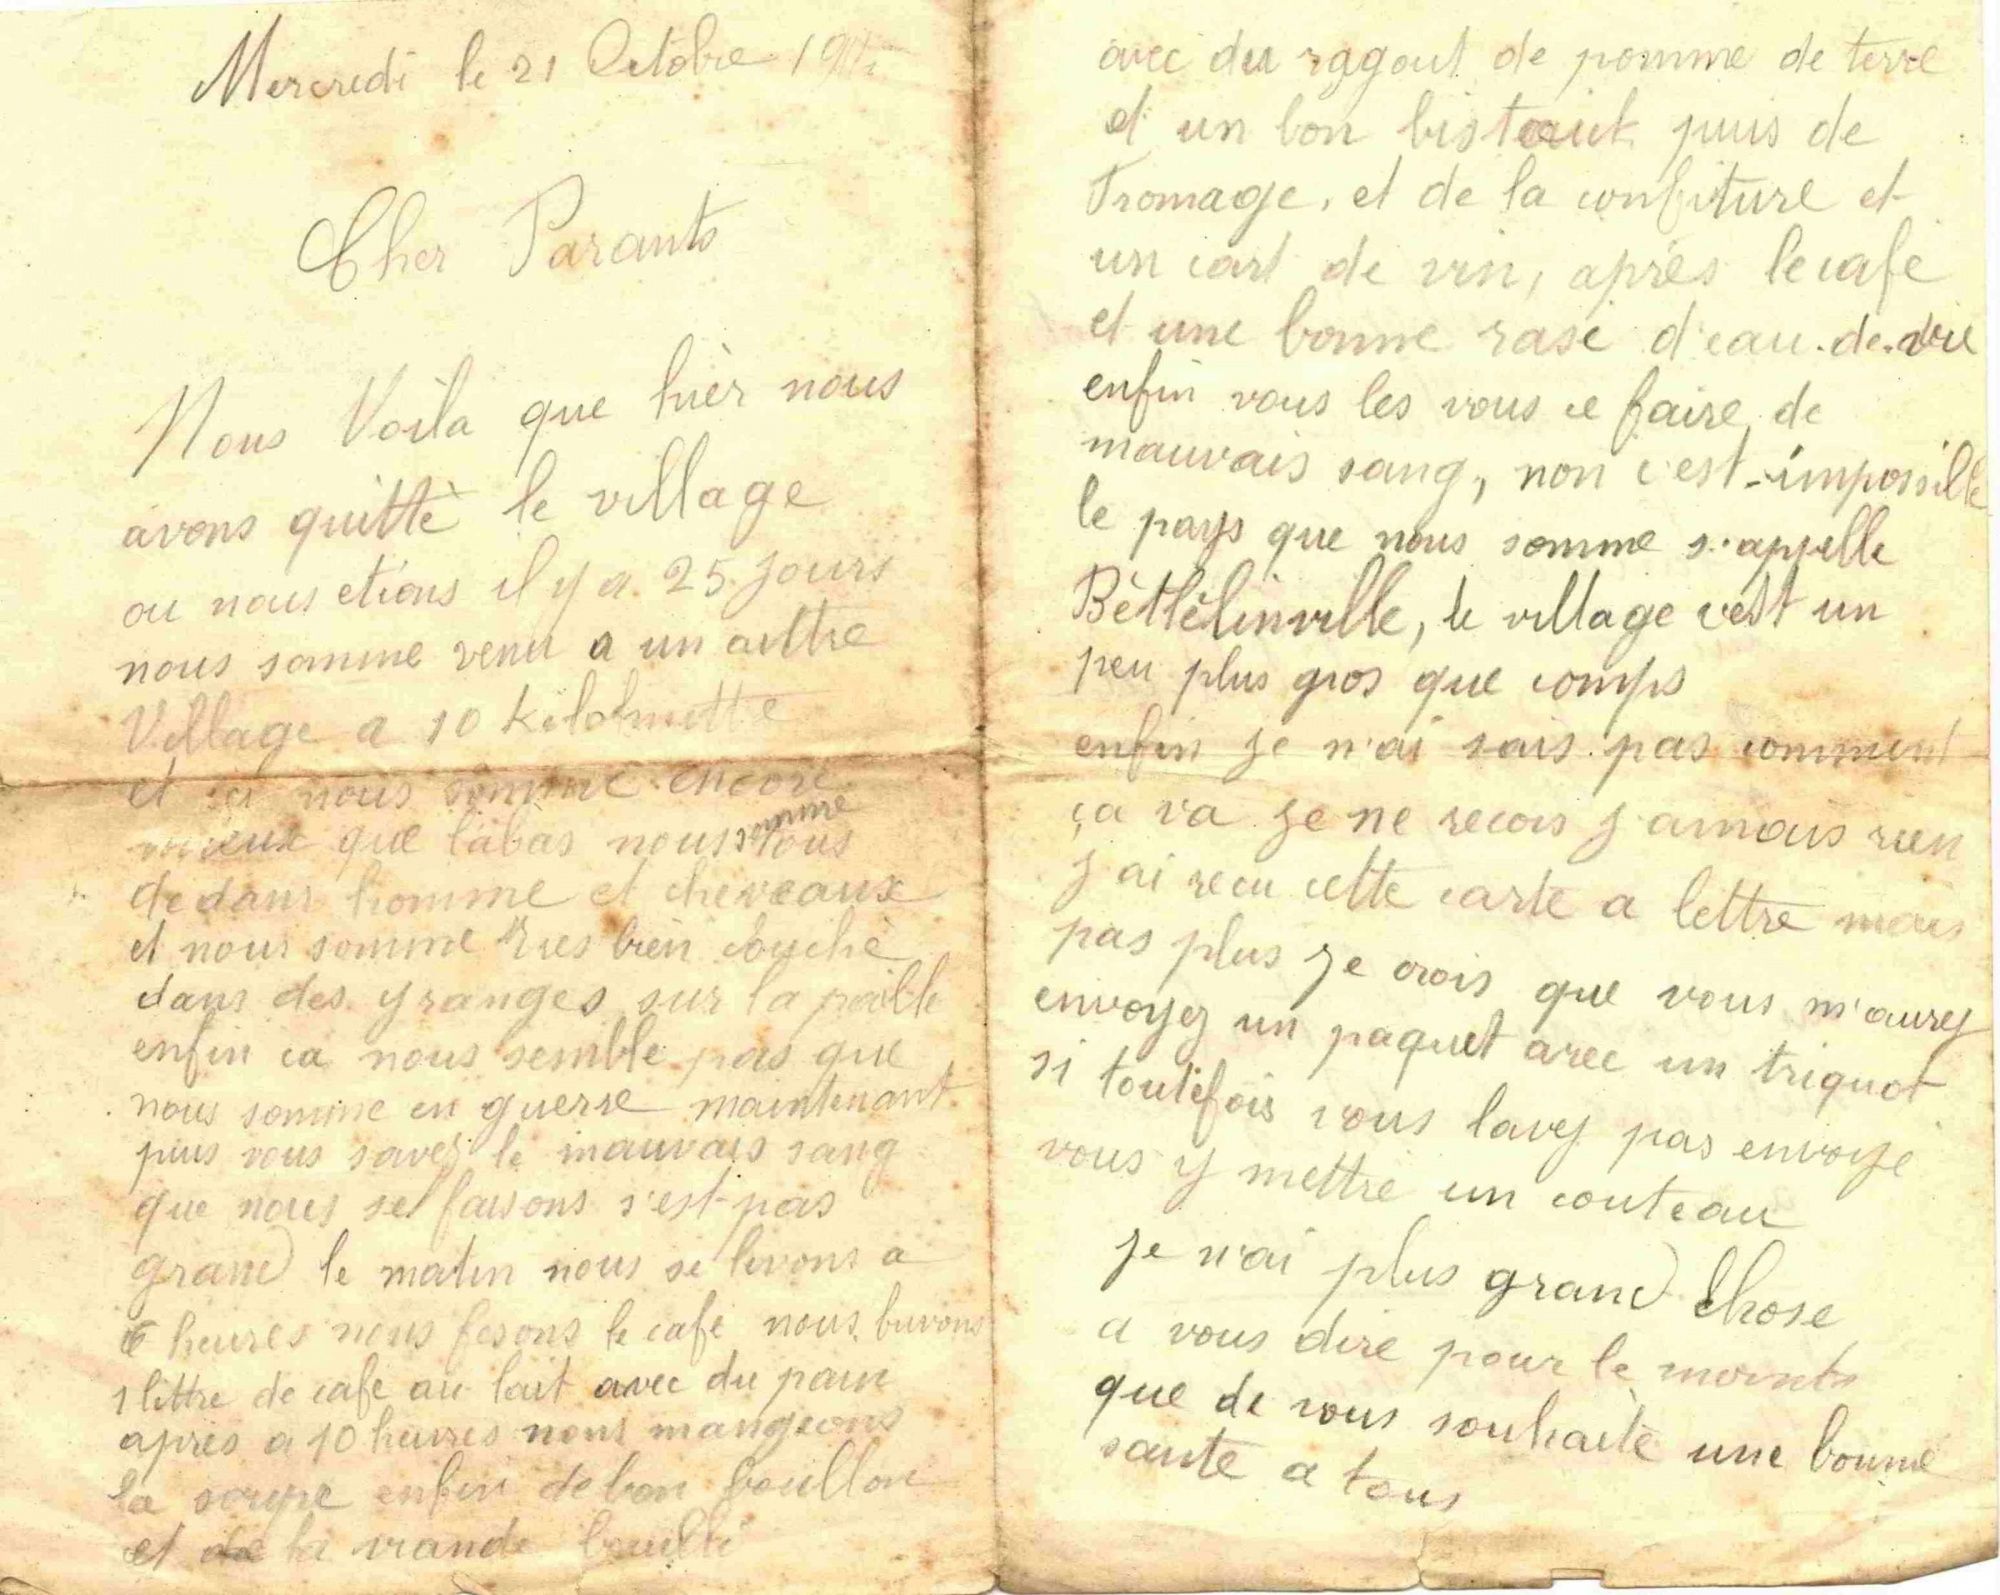 Mercredi le 21 Octobre 191
Cher Parants
Nous Voila que hièr nous
avons quittè le village
ou nous etions il y a 25 jours
nous somme venu a un auttre
Village a 10 kilolmette
et ici nous somme encore
mieux que labas nous somme tous
de dans homme et cheveaux
et nous somme tres bien couchè
dans des granges sur la paille
enfin ca nous semble pas que
nous somme en guerre maintenant
puis vous savez le mauvais sang
que nous se faisons s'est pas
grand le matin nous se levons a
6 heures nous fesons le cafe nous buvons
1 littre de cafe au lait avec du pain
après a 10 heures nous mangeons
la soupe enfin de bon bouillon
et de la viande bouilli
avec du ragout de pomme de terre
et un bon bisteaik puis de
Fromage, et de la confiture et
un cart de vin, après le cafe
et une bonne rase d'eau-de-vie
enfin vous les vous ce faire de
mauvais sang, non c'est impossible
le pays que nous somme s'appelle
Bètlèlinville, le village c'est un
peu plus gros que comps
enfin je n'ai sais pas comment
ça va je ne recois jamais rien
j'ai recu cette carte a lettre mais
pas plus je crois que vous m'aurez
envoyez un paquet avec un triquot
si toutefois vous lavez pas envoyé
vous y mettre un couteau
je n'ai plus grand chose
a vous dire pour le moment
que de vous souhaitè une bonne
sante a tous